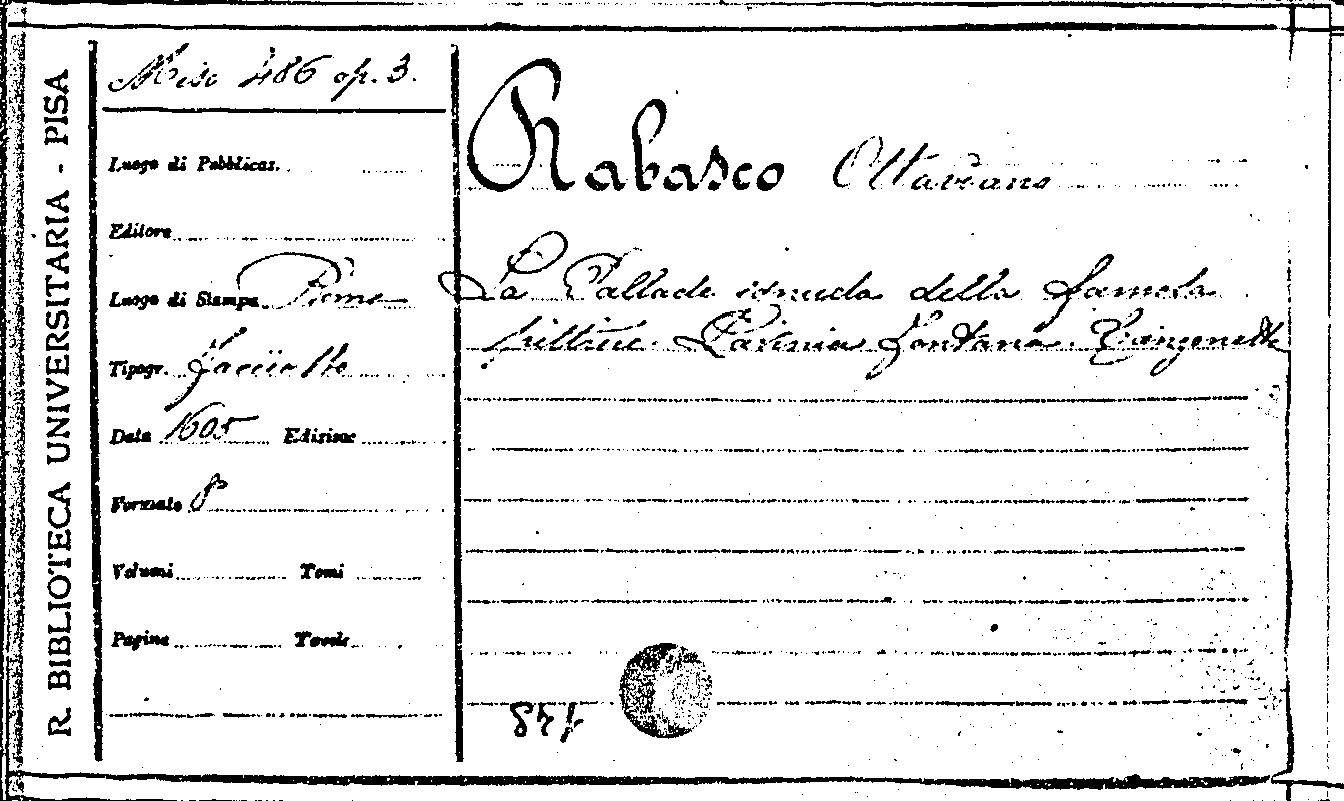 R. BIBLIOTECA UNIVERSITARIA - PISA
Misc 486 op. 3.
Luogo di Pubblicaz.
Editore
Luogo di Stampa Roma
Tipogr. Facciotto
Data 1605 Edizione
Formato 8°
Volumi Tomi
Pagine Tavole
Rabasco Ottaviano
La Pallade ignuda della famosa
pittrice Lavinia Fontana
148